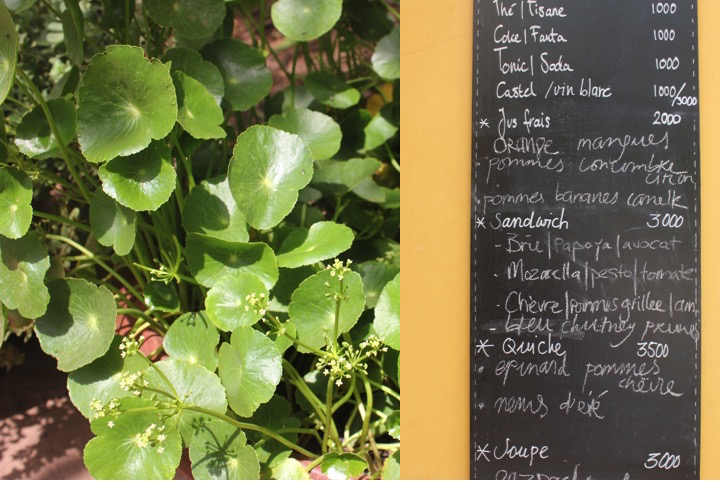 Thé / Tisane 1000
Coke / Fanta 1000
Tonic / Soda 1000
Castel / vin blanc 1000/3000
* Jus frais 2000
ORANGE mangues
pommes concombre
citron
pommes bananes canelle
* Sandwich 3000
- Brie / Papaya / avocat
- Mozarella / pesto / tomate
- Chèvre / pommes grillee / am
- bleu chutney prunes
* Quiche 3500
- épinard pommes
chèvre
- nems d'été
* Soupe 3000